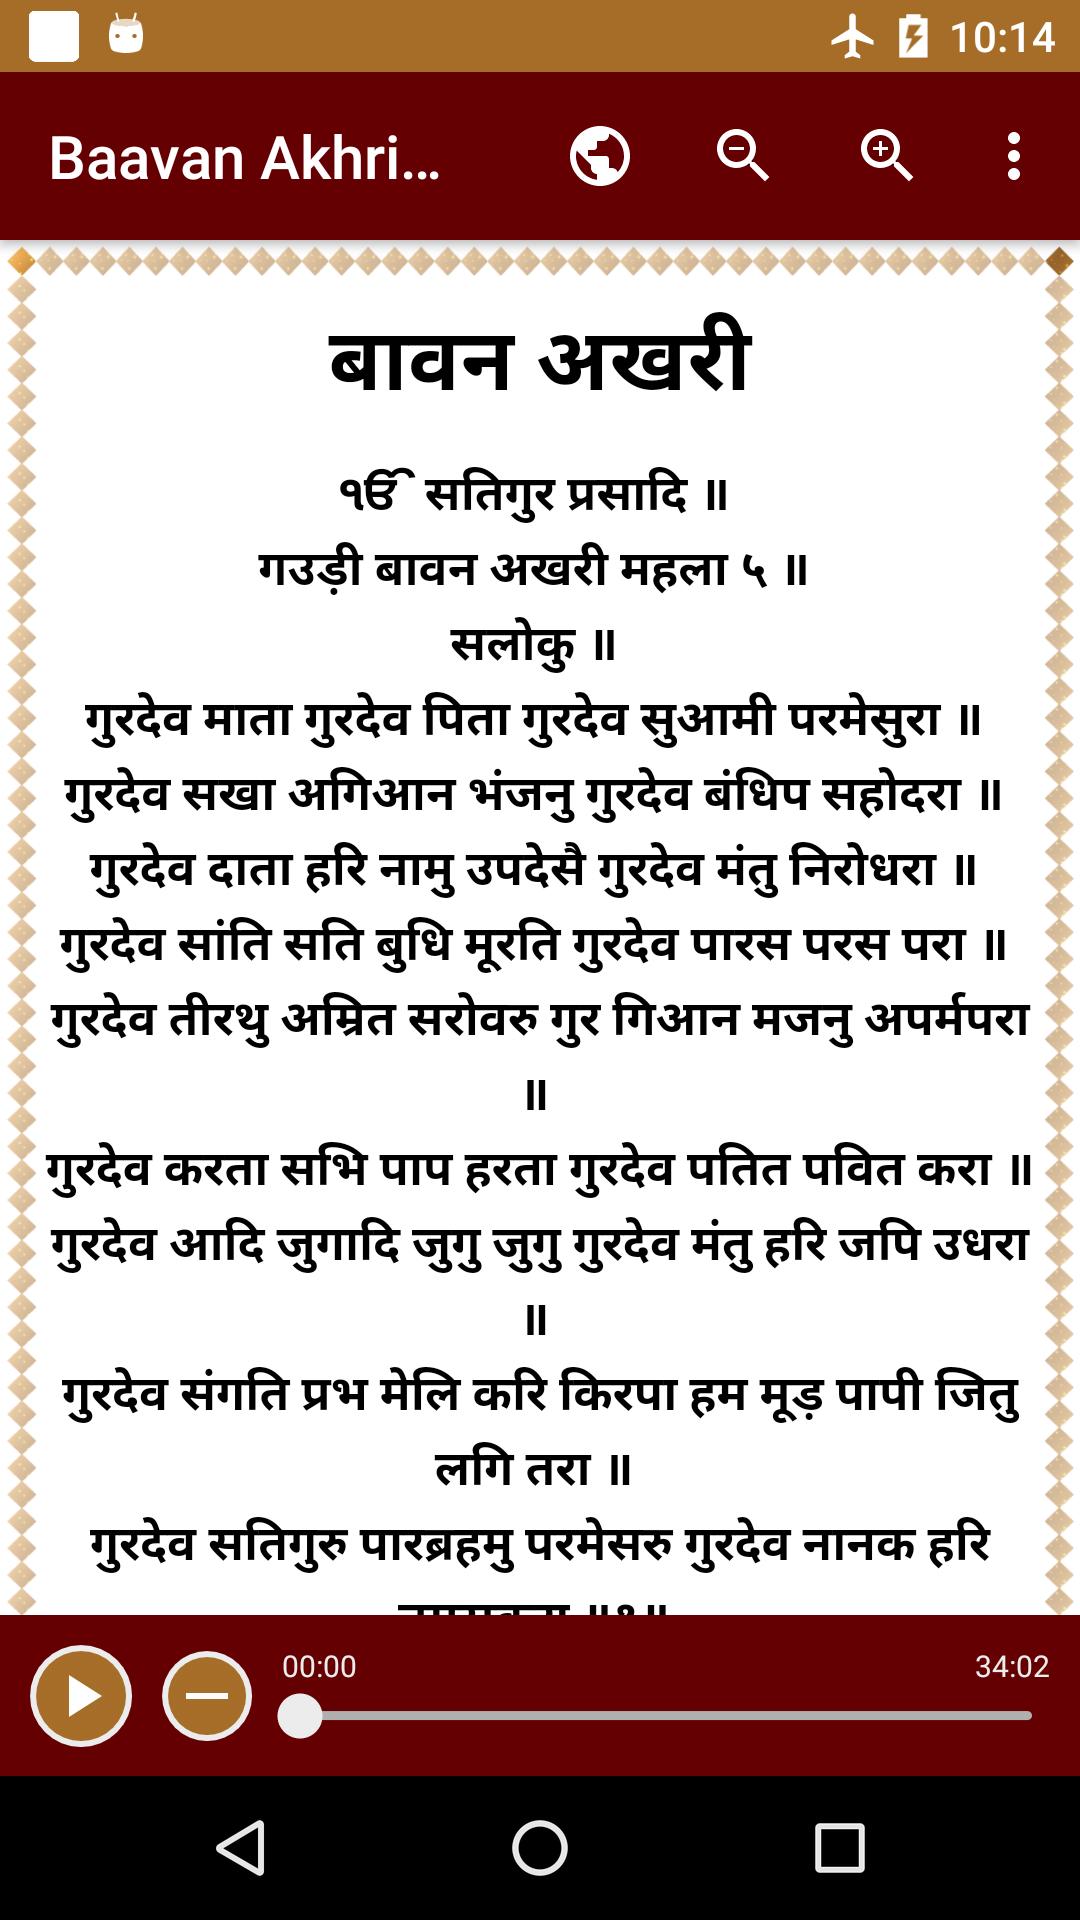 10:14
Baavan Akhri...
बावन अखरी
ੴ सतिगुर प्रसादि ॥
गउड़ी बावन अखरी महला ५ ॥
सलोकु ॥
गुरदेव माता गुरदेव पिता गुरदेव सुआमी परमेसुरा ॥
गुरदेव सखा अगिआन भंजनु गुरदेव बंधिप सहोदरा ॥
गुरदेव दाता हरि नामु उपदेसै गुरदेव मंतु निरोधरा ॥
गुरदेव सांति सति बुधि मूरति गुरदेव पारस परस परा ॥
गुरदेव तीरथु अम्रित सरोवरु गुर गिआन मजनु अपर्मपरा
॥
गुरदेव करता सभि पाप हरता गुरदेव पतित पवित करा ॥
गुरदेव आदि जुगादि जुगु जुगु गुरदेव मंतु हरि जपि उधरा
॥
गुरदेव संगति प्रभ मेलि करि किरपा हम मूड़ पापी जितु
लगि तरा ॥
गुरदेव सतिगुरु पारब्रहमु परमेसरु गुरदेव नानक हरि
00:00
34:02